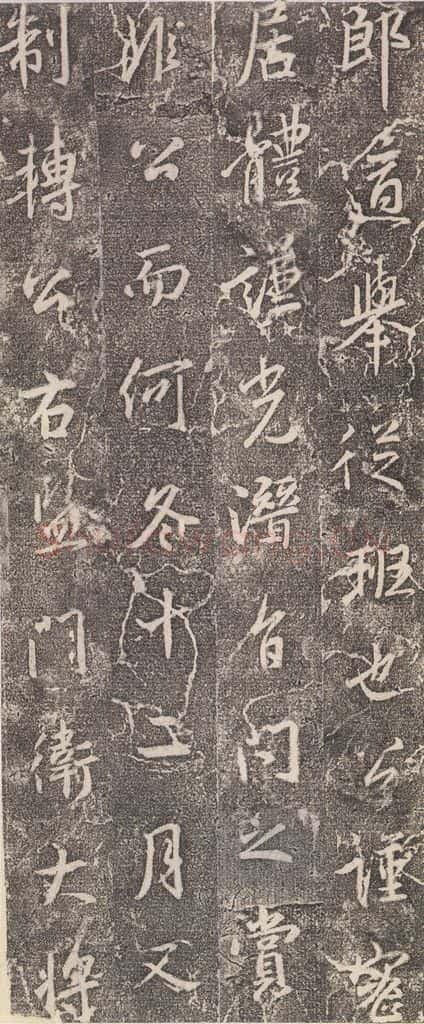 郎道舉從班也公謹密
居體謹光潛旨問之賞
公而何冬十二月又
制轉公右監門衛大將